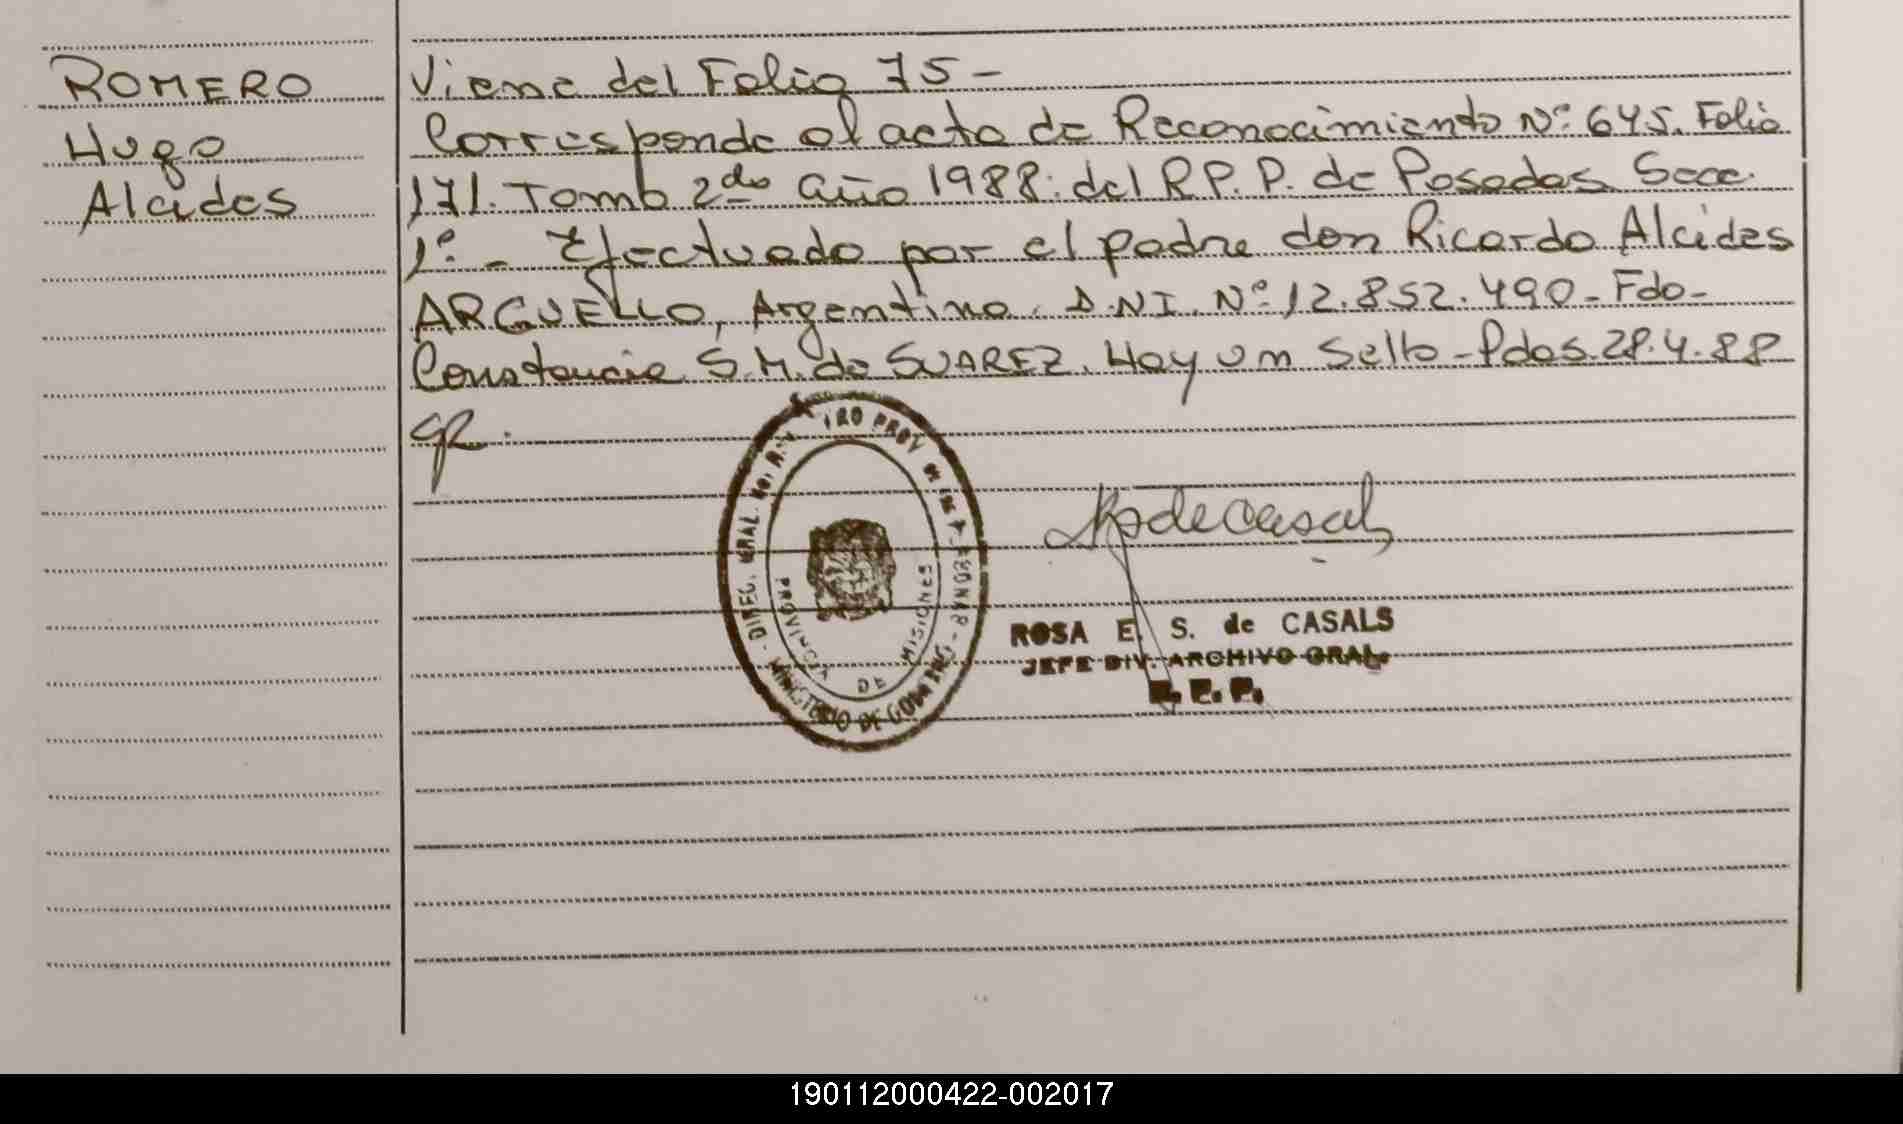 ROMERO
Hugo
Alcides
Viene del Folio 75 -
Corresponde al acta de Reconocimiento Nº 645. Folio
171. Tomo 2do año 1988. del R.P.P. de Posadas Secc.
1º - Efectuado por el padre don Ricardo Alcides
ARGUELLO, Argentino. D.N.I. Nº 12.852.490 - Fdo -
Constancia S.M. de SUAREZ. Hay un Sello - Pdas. 28.4.88
DIREC. GRAL. PROV DE LAS PERSONAS - MINISTERIO DE GOBIERNO
PROVINCIA DE MISIONES
R de Casals
ROSA E. S. de CASALS
JEFE DIV. ARCHIVO GRAL.
R. P. P.
190112000422-002017